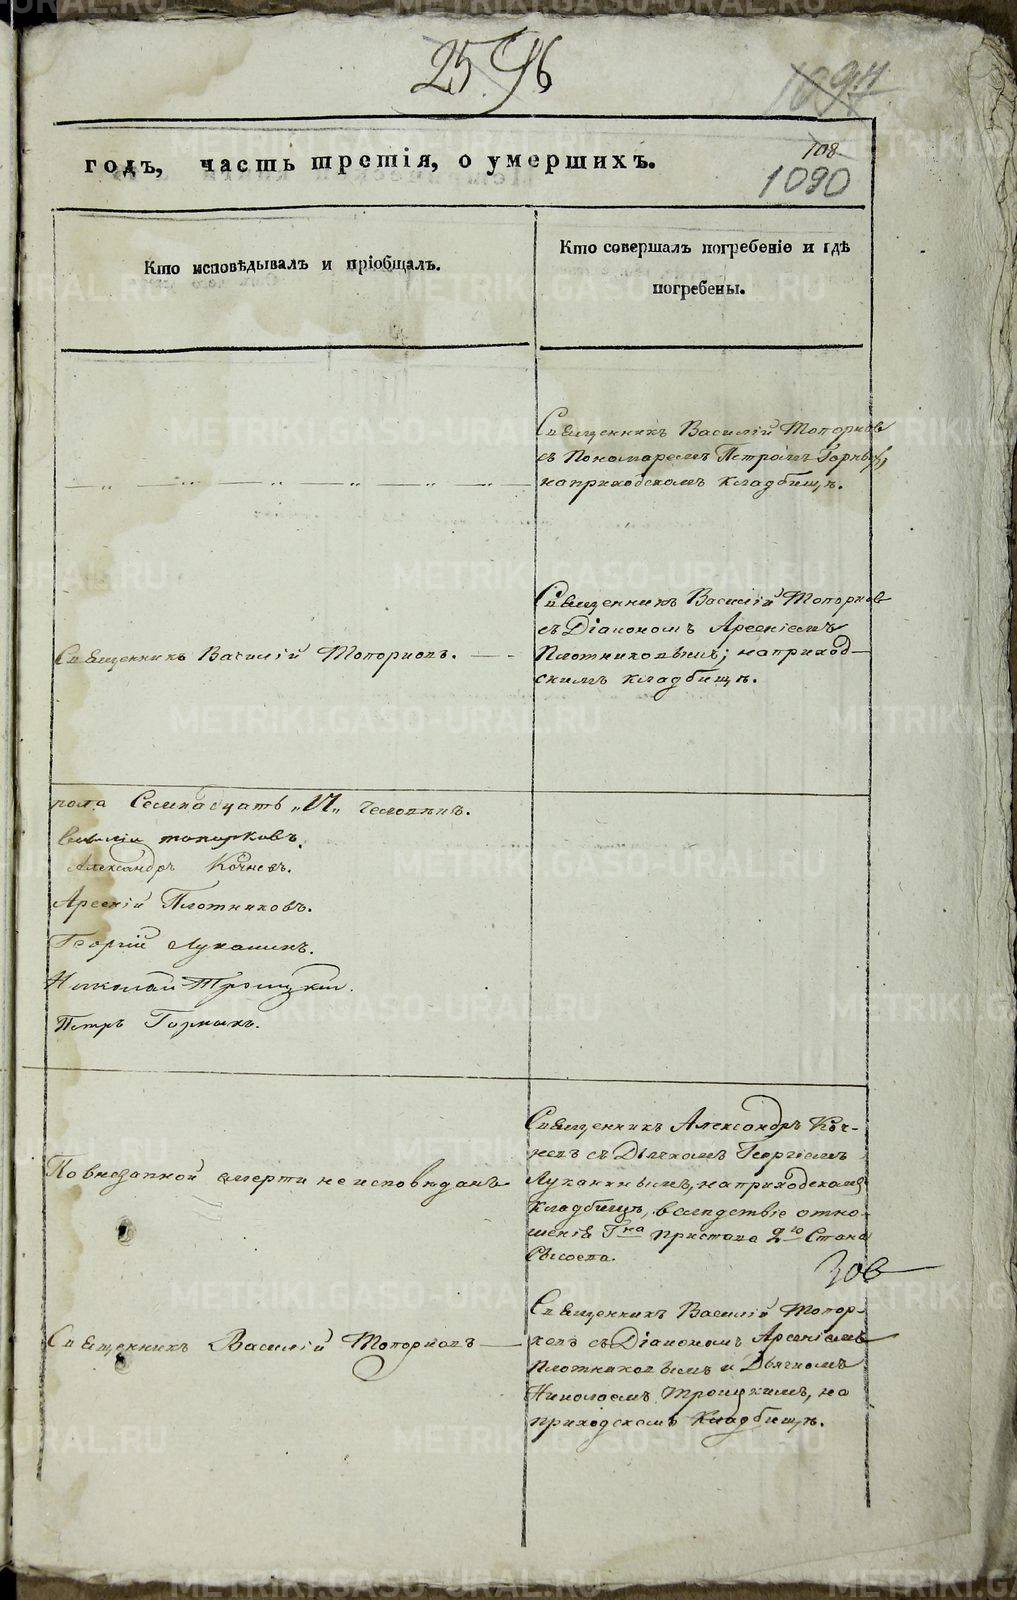 2596
1097
108
1090
годъ, часть третія, о умершихъ.
Кто исповѣдывалъ и пріобщалъ.
Кто совершалъ погребеніе и гдѣ
погребены.
Священникъ Василій Топорковъ
съ Пономаремъ Петромъ Горныхъ,
на приходскомъ кладбищѣ.
Священникъ Василій Топорковъ
съ Діакономъ Арсеніемъ
Плотниковымъ, на приход-
скимъ кладбищѣ.
Священникъ Василій Топорковъ.
пола Семнадцать „17„ человѣкъ.
Василій Топорковъ.
Александръ Кочневъ.
Арсеній Плотниковъ.
Георгій Луканинъ.
Николай Троицкій.
Петръ Горныхъ.
Священникъ Александръ Коч-
невъ съ Дьячкомъ Георгіемъ
Луканинымъ, на приходскомъ
кладбищѣ, вслѣдствіе отно-
шенія Гна Пристава 2го Стана
По внезапной смерти не исповѣданъ
Священникъ Василій Топор-
ковъ съ Діакономъ Арсеніемъ
Плотниковымъ и Дьячкомъ
Николаемъ Троицкимъ, на
приходскомъ Кладбищѣ.
Священникъ Василій Топорковъ
METRIKI.GASO-URAL.RU